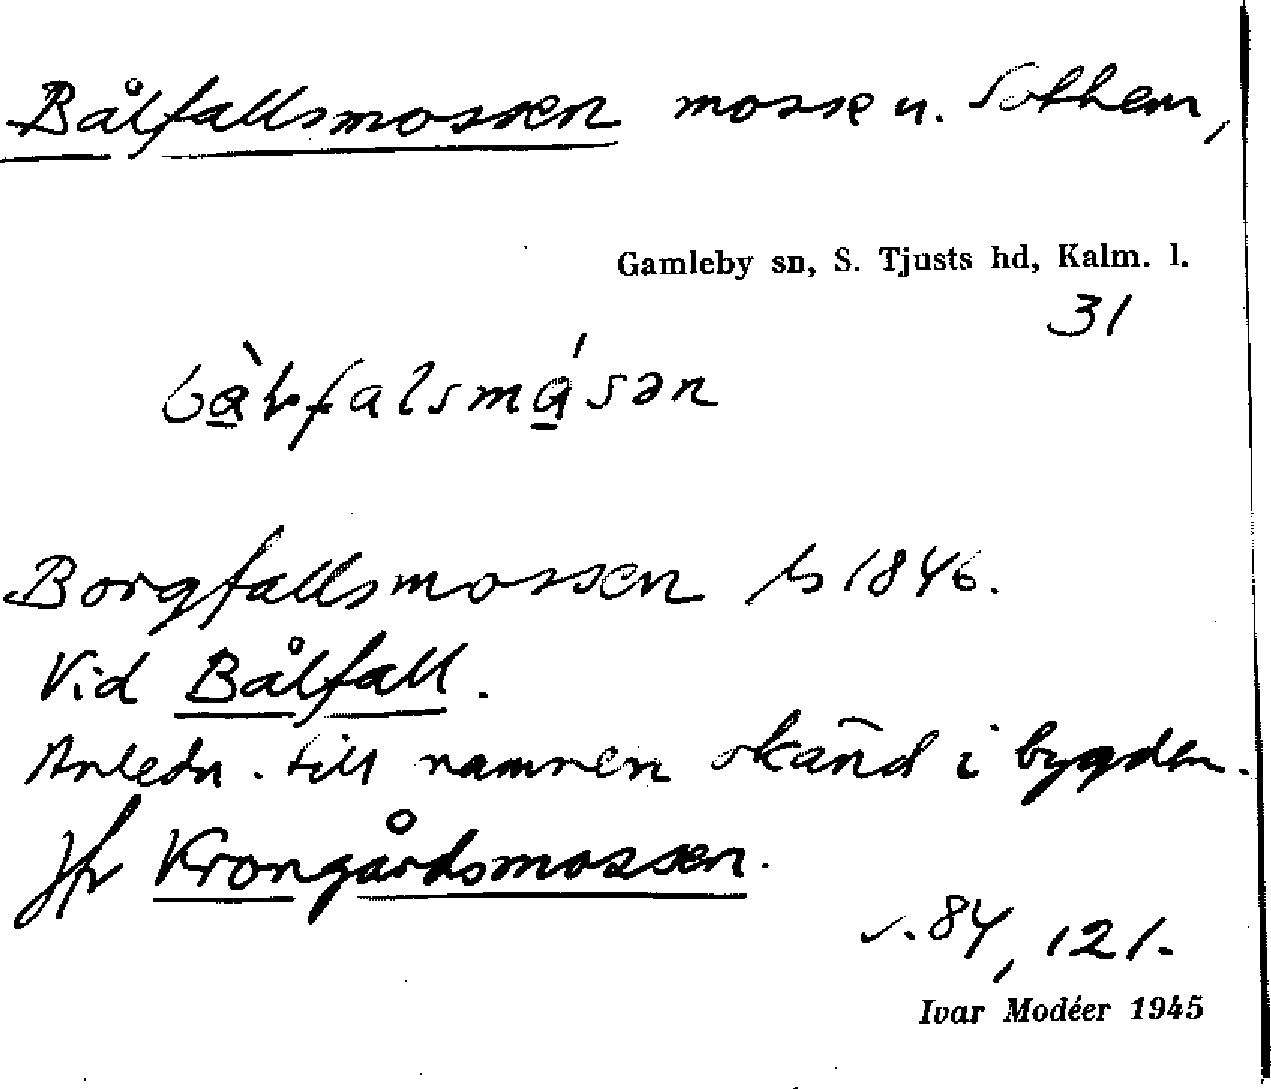 Bålfallsmossen mosse u. Sothem,
Gamleby sn, S. Tjusts hd, Kalm. l.
31
Borgfallsmossen ls 1846.
Vid Bålfall.
Anledn. till namnen okänd i bygden.
Jfr Krongårdsmossen.
s. 84, 121.
Ivar Modéer 1945